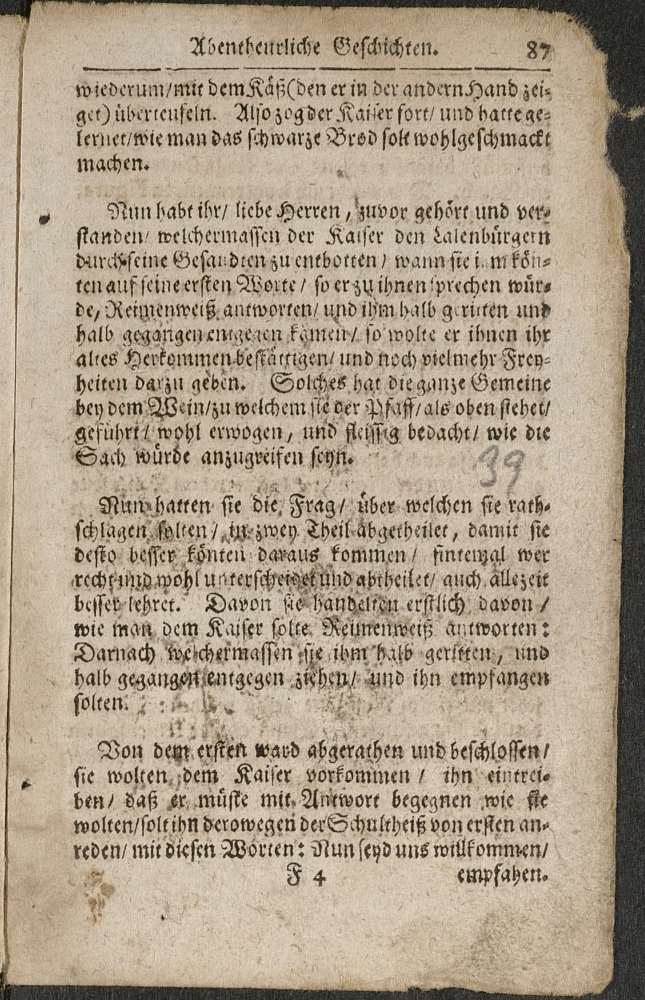 Abentheurliche Geschichten. 87
wiederum/mit dem Käß(den er in der andern Hand zei-
get) überteufeln. Also zog der Kaiser fort/ und hatte ge-
lernet/wie man das schwarze Brod solt wohlgeschmackt
machen.
Nun habt ihr/ liebe Herren, zuvor gehört und ver-
standen/ welchermassen der Kaiser den Lalenbürgern
durch seine Gesandten zu entbotten/ wann sie ihm kön-
ten auf seine ersten Worte/ so er zu ihnen sprechen wür-
de, Reimenweiß antworten/ und ihm halb geritten und
halb gegangen entgegen kämen/ so wolte er ihnen ihr
altes Herkommen bestättigen/ und noch vielmehr Frey-
heiten darzu geben. Solches hat die ganze Gemeine
bey dem Wein/zu welchem sie der Pfaff/als oben stehet/
geführt/ wohl erwogen, und fleissig bedacht/ wie die
Sach würde anzugreifen seyn.
39
Nun hatten sie die Frag/ über welchen sie rath-
schlagen solten/ in zwey Theil abgetheilet, damit sie
desto besser könten daraus kommen/ sintemal wer
recht und wohl unterscheidet und abtheilet/ auch allezeit
besser lehret. Davon sie handelten erstlich davon/
wie man dem Kaiser solte Reimenweiß antworten:
Darnach welchermassen sie ihm halb geritten, und
halb gegangen entgegen ziehen/ und ihn empfangen
solten.
Von dem ersten ward abgerathen und beschlossen/
sie wolten dem Kaiser vorkommen/ ihn eintrei-
ben/ daß er müste mit Antwort begegnen wie sie
wolten/solt ihn derowegen der Schultheiß von ersten an-
reden/ mit diesen Worten: Nun seyd uns willkommen/
F 4 empfahen.